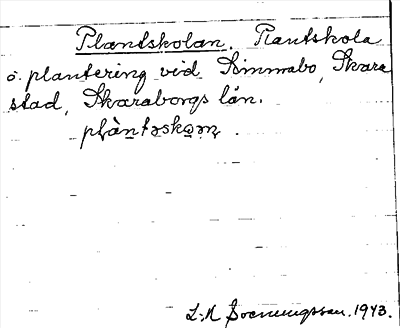 Plantskolan. Plantskola
o. plantering vid Simmabo, Skara
stad, Skaraborgs län.
L.M. Svenungsson. 1943.